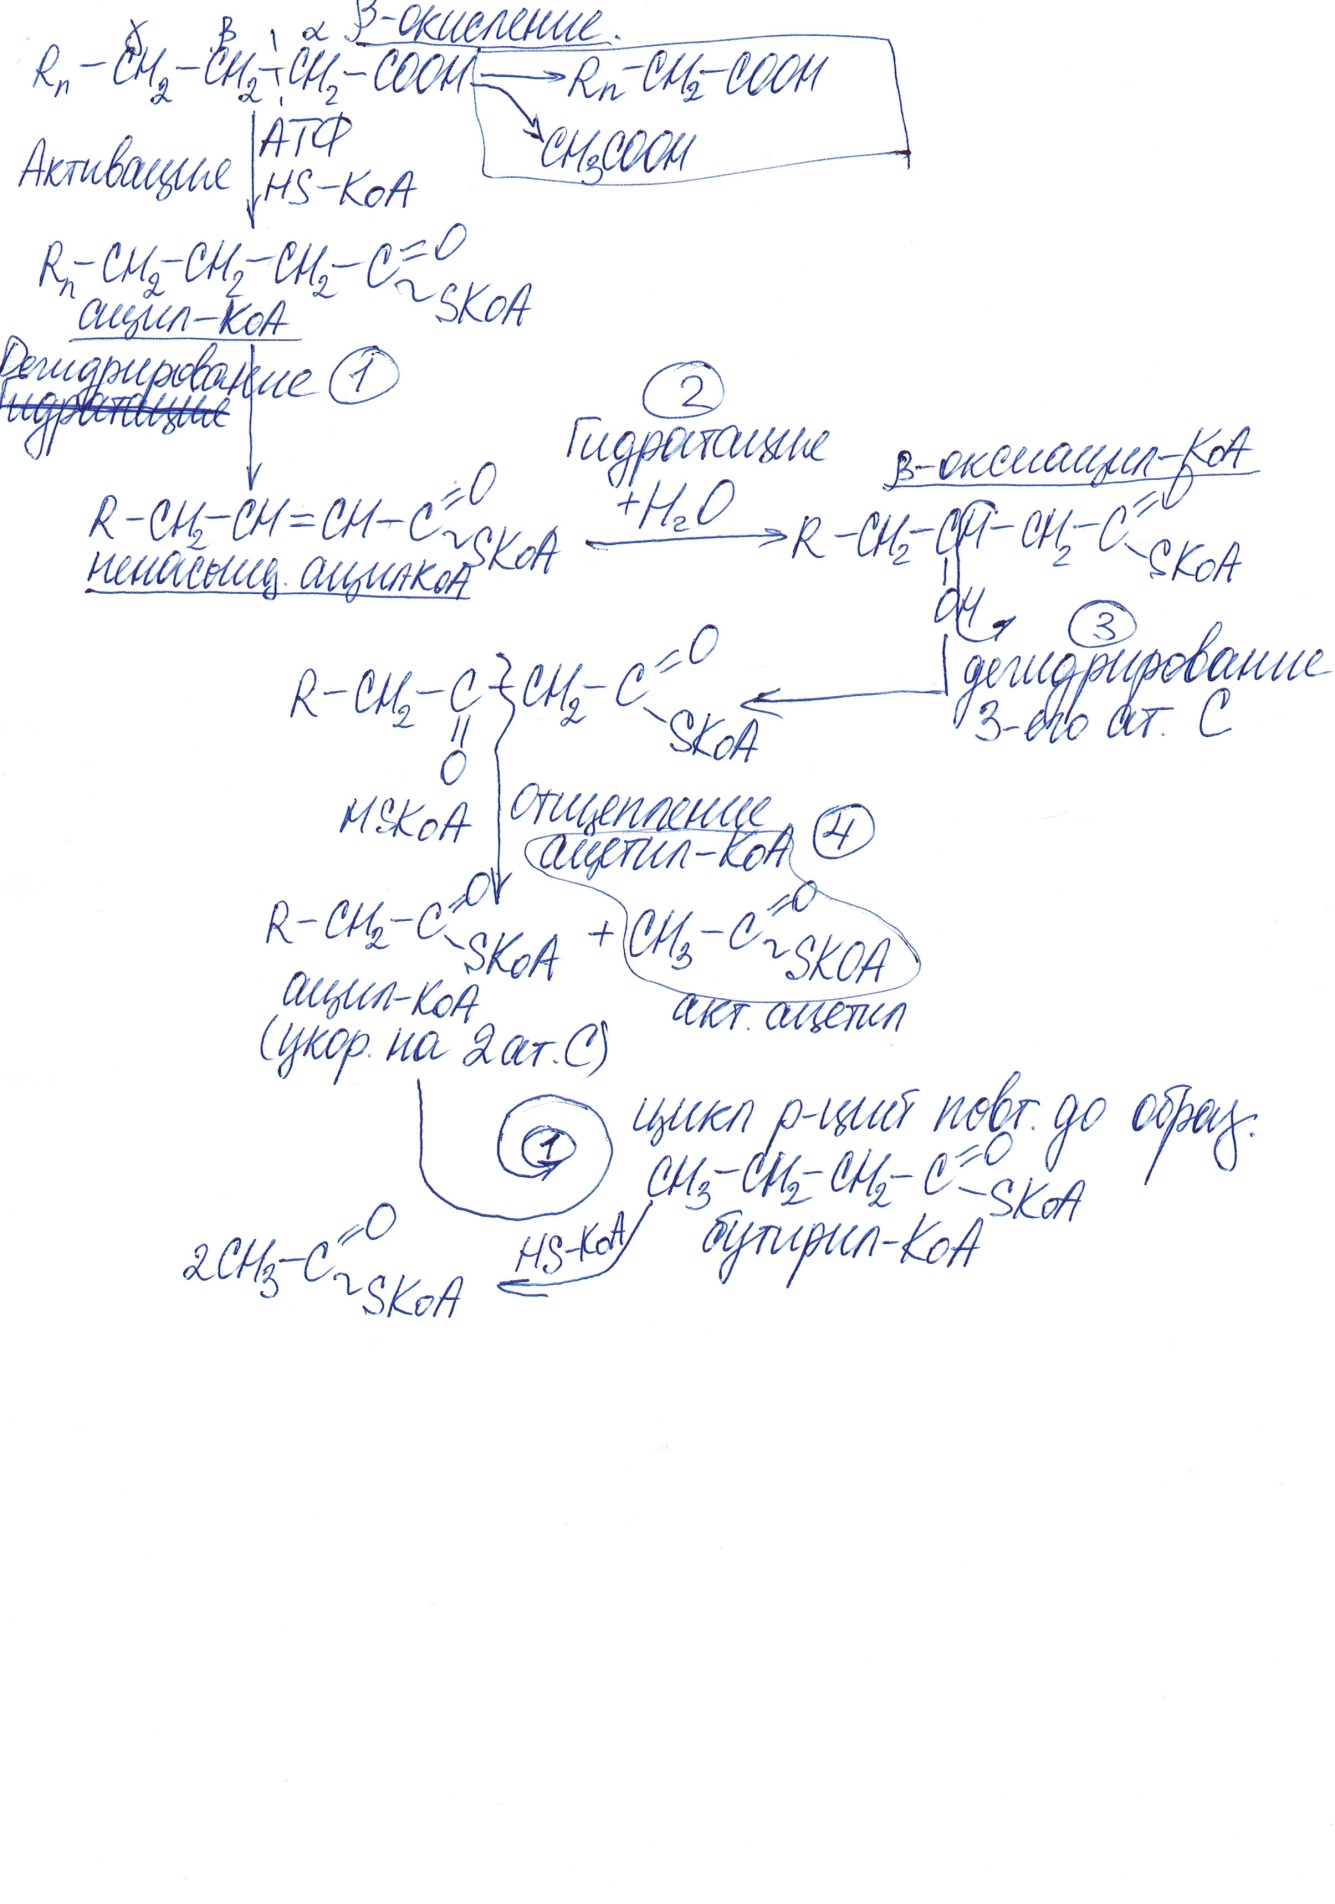 β-окисление.
γ β α
Rn-CH2-CH2-CH2-COOH → Rn-CH2-COOH
CH3COOH
Активация АТФ
HS-KoA
Rn-CH2-CH2-CH2-C=O
~SKoA
ацил-КоА
Дегидрирование 1
Гидратация
2
Гидратация
+H2O
β-оксиацил-КоА
R-CH2-CH=CH-C=O
~SKoA
ненасыщ. ацилкоА
R-CH2-CH-CH2-C=O
SKoA
OH
3
дегидрирование
3-его ат. С
R-CH2-C-CH2-C=O
SKoA
O
HSKoA
Отщепление
ацетил-КоА 4
R-CH2-C=O
SKoA
+ CH3-C=O
~SKOA
ацил-КоА
(укор. на 2 ат. С)
акт. ацетил
1
цикл р-ций повт. до образ.
CH3-CH2-CH2-C=O
SKoA
бутирил-КоА
HS-KoA
2CH3-C=O
~SKoA